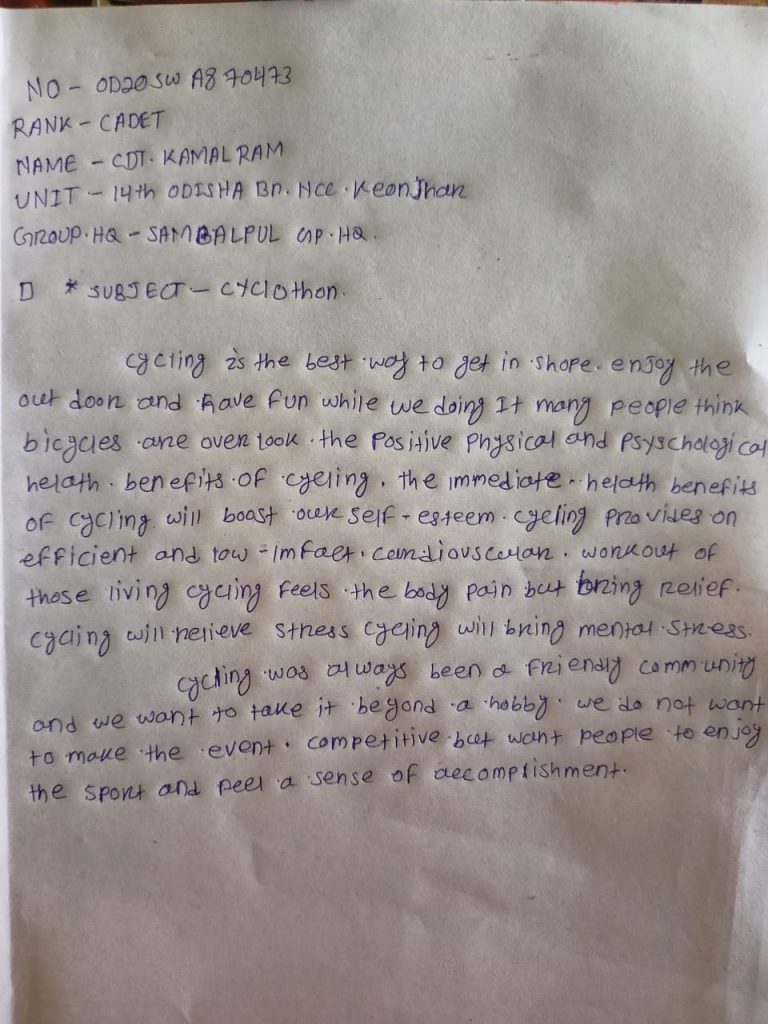 NO - OD20SWA870473
RANK - CADET
NAME - CDT. KAMAL RAM
UNIT - 14th ODISHA Bn. NCC. Keonjhar
GROUP.HQ - SAMBALPUL GP.HQ.
* SUBJECT - CYCLOthon.
cycling is the best way to get in shope. enjoy the
out door and have fun while we doing It many people think
bicycles are over look. the Positive Physical and Psyschological
helath. benefits of cycling. the immediate helath benefits
of cycling will boast our self-esteem. cycling provides on
efficient and low-imfact. cardiousculan. workout of
those living cycling feels the body pain but bring relief.
cycling will relieve stress cycling will bring mental stress.
cycling was always been a friendly community
and we want to take it beyond a hobby. we do not want
to make the event. competitive but want people to enjoy
the sport and peel a sense of accomplishment.